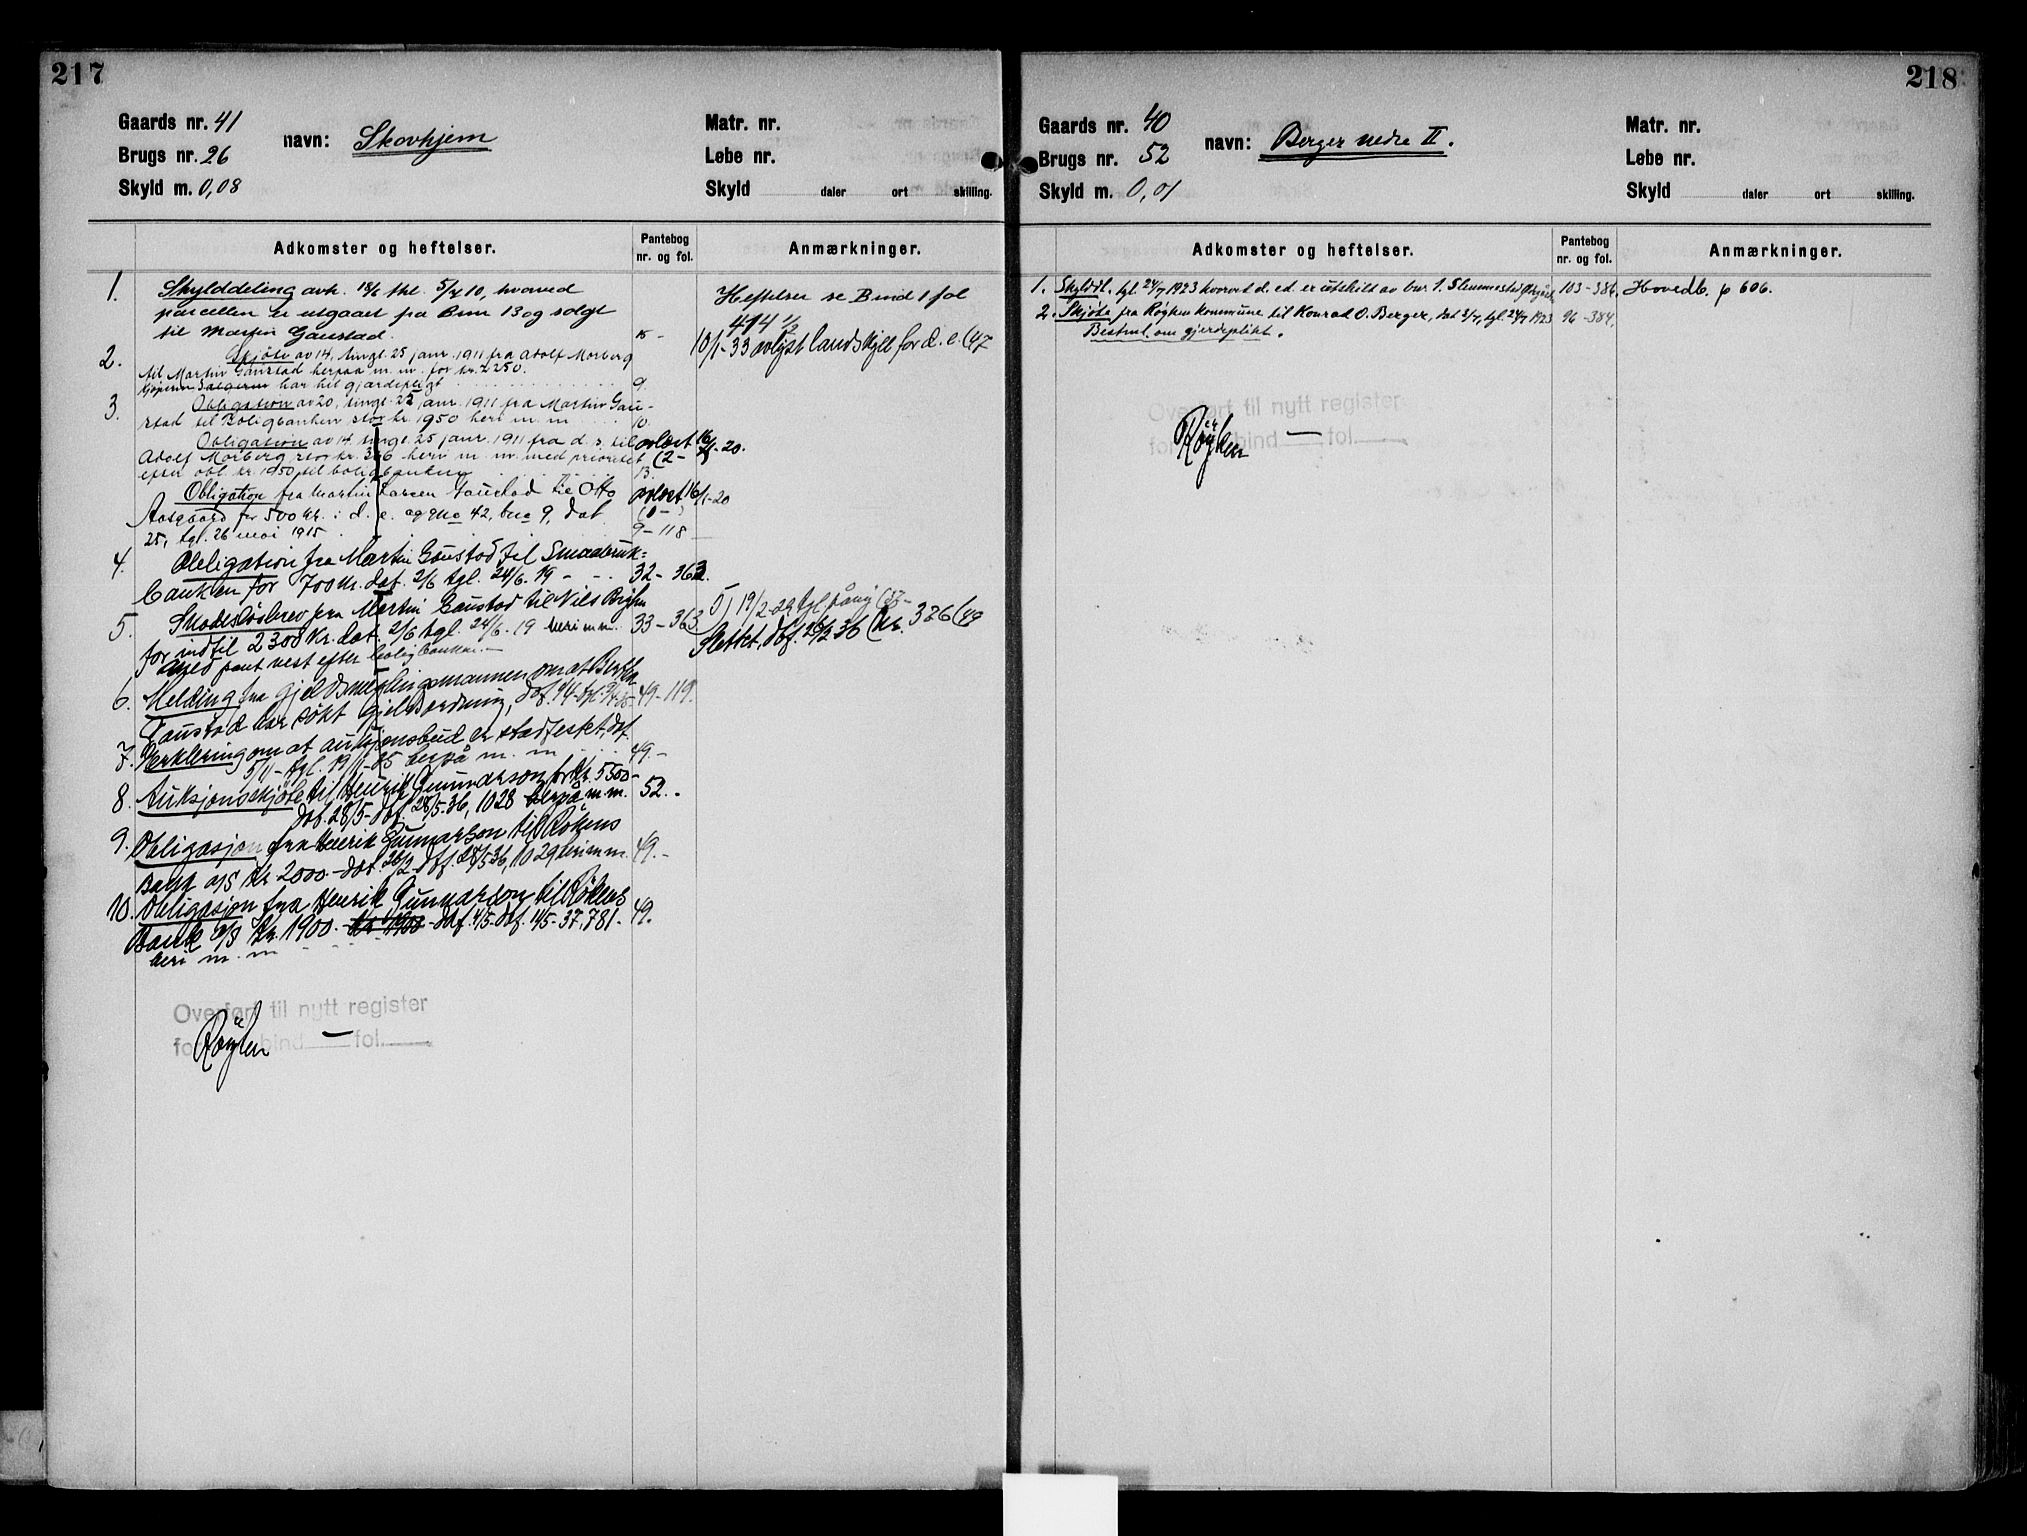 217
Gaards nr. 41
Brugs nr. 26
Skyld m. 0,08
navn: Skovhjem
Matr. nr.
Løbe nr.
Skyld daler ort skilling.
Adkomster og heftelser.
Pantebog
nr. og fol.
Anmærkninger.
1. Skylddeling avh. 18/6 thl. 5/7 10, hvorved
parcellen er utgaaet fra Bnr 13 og solgt
til Martin Gaustad. 15 -
Heftelser se Bind 1 fol
414 1/2
10/1-33 avlyst landskyld for d. e. (47
2. Skjøte av 14, tingl. 25 janr. 1911 fra Adolf Morberg
til Martin Gaustad herpaa m. m. for kr. 2250.
Kjøperen Sælgeren har hel gjærdepligt 9.
3. Obligation av 20, tingl. 25 janr. 1911 fra Martin Gau-
stad til Boligbanken stor kr. 1950 heri m. m. 10.
Obligation av 14. tingl. 25 janr. 1911 fra d. s. til
Adolf Morberg stor kr. 346 heri m. m. med prioritet
efter obl. kr. 1950 til boligbanken 13.
avlæst 16/1-20.
Obligation fra Martin Larsen Gaustad til Otto
Aasgaard for 500 kr. i d. e. og gno 42, bno 9, dat
25, tgl. 26 mai 1915 9-118
avlæst 16/1-20
4. Obligation fra Martin Gaustad til Smaabruk=
banken for 700 kr. dat. 2/6 tgl. 24/6. 19 - 32-363.
5. Skadesløsbrev fra Martin Gaustad til Nils
for indtil 2300 kr. dat. 2/6 tgl. 24/6. 19 heri m m. 33-363
med pant nest efter boligbanken.
5) 19/2-29 tgl påny
Slettet, dbf. 26/2 36 (nr. 326 (49
6. Melding fra Gjeldsmeglingsmannen om at
Gaustad har søkt Gjeldsordning, 49-119.
7. Erklering om at auksjonsbud er stadfestet, dat.
5/11- tgl. 19/11-35 herpå m. m 49.-
8. Auksjonsskjøte til Henrik Gunnarson for kr. 5500-
dat. 28/5- dbf. 28/5-36, 1028 herpå m. m. 52.-
9. Obligasjon fra Henrik Gunnarson til Røkens
Bank a/s kr 2000.- dat. 26/2- dbf. 28/5 36, 1029 heri m m. 49.-
10. Obligasjon fra Henrik Gunnarson til Røkens
Bank a/s kr. 1900. kr 1900 - dat. 4/5- dbf. 14/5-37, 781- 49.
heri m. m
Overført til nytt register
for Røyken bind — fol.
218
Gaards nr. 40
Brugs nr. 52
Skyld m. 0,01
navn: Berger nedre II.
Matr. nr.
Løbe nr.
Skyld daler ort skilling.
Adkomster og heftelser.
Pantebog
nr. og fol.
Anmærkninger.
1. Skyldd. tgl. 24/7 1923 hvorved d. ed. er utskilt av bnr. 1. Slemmestad 103-386, Hovedb. p 606.
2. Skjøte fra Røyken kommune til Konrad O. Berger, dat 3/7, tgl. 24/7 1923 96-384,
Bestemt. om gjerdeplikt.
Overført til nytt register
for Røyken bind — fol.